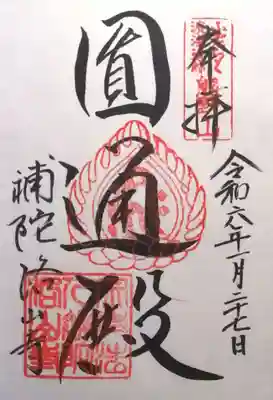 奉拝
令和六年一月二十七日
圓通殿
補陀洛山寺